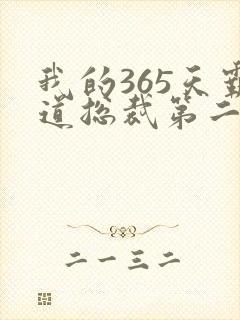 我的365天霸
道总裁第二
二一三二